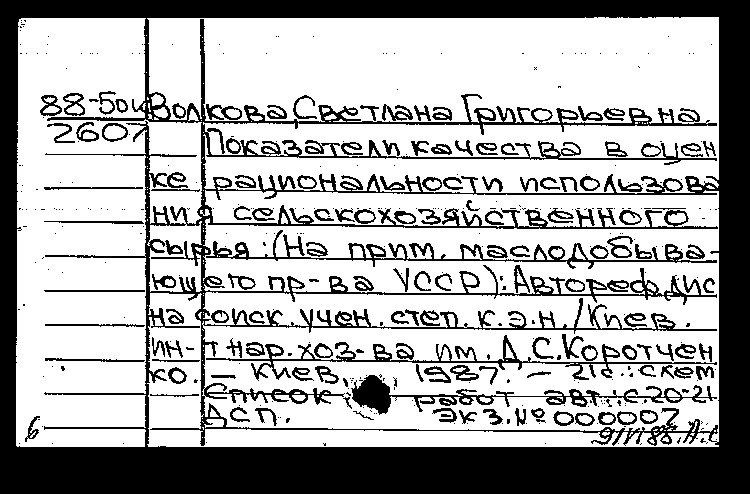 88-50и Волкова, Светлана Григорьевна.
2607 Показатели качества в оцен
ке рациональности использова
ния сельскохозяйственного
сырья :(На прим. маслодобыва-
ющего пр-ва УССР): Автореф. дис
на соиск. учен. степ. к.э.н. / Киев.
ин-т нар. хоз-ва им. Д.С. Коротчен
ко. — Киев, 1987. — 21с.: схем
Список работ авт.: с.20-21
ДСП. Экз. № 000007
6